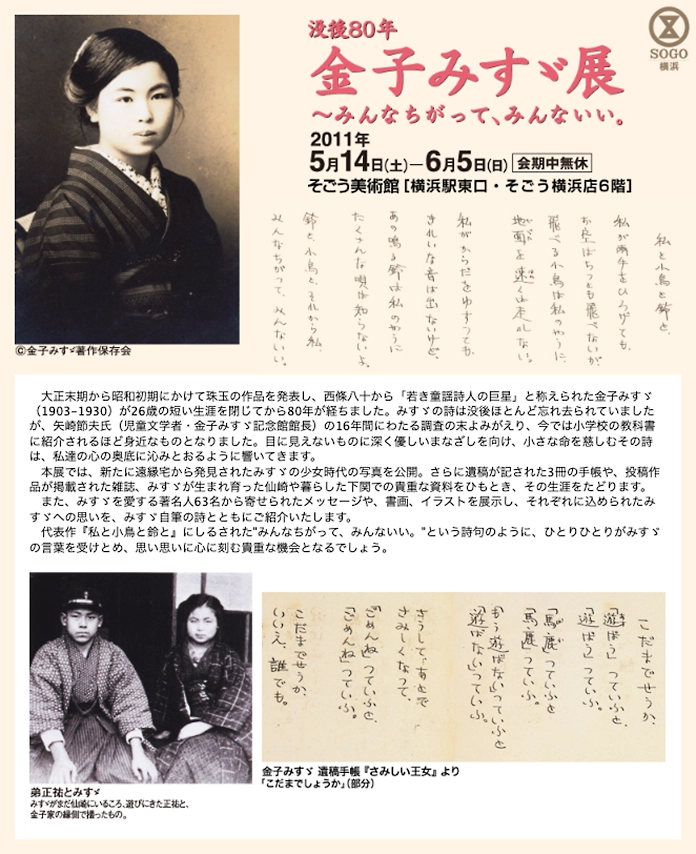 没後80年
金子みすゞ展
～みんなちがって、みんないい。
SOGO
横浜
2011年
5月14日(土)―6月5日(日) 会期中無休
そごう美術館[横浜駅東口・そごう横浜店6階]
私と小鳥と鈴と、
私が両手をひろげても、
お空はちっとも飛べないが、
飛べる小鳥は私のやうに、
地面を速くは走れない。
私がからだをゆすっても、
きれいな音は出ないけど、
あの鳴る鈴は私のやうに
たくさんな唄は知らないよ。
鈴と、小鳥と、それから私、
みんなちがって、みんないい。
©金子みすゞ著作保存会
大正末期から昭和初期にかけて珠玉の作品を発表し、西條八十から「若き童謡詩人の巨星」と称えられた金子みすゞ
（1903–1930）が26歳の短い生涯を閉じてから80年が経ちました。みすゞの詩は没後ほとんど忘れ去られていました
が、矢崎節夫氏（児童文学者・金子みすゞ記念館館長）の16年間にわたる調査の末よみがえり、今では小学校の教科書
に紹介されるほど身近なものとなりました。目に見えないものに深く優しいまなざしを向け、小さな命を慈しむその詩
は、私達の心の奥底に沁みとおるように響いてきます。
本展では、新たに遠縁宅から発見されたみすゞの少女時代の写真を公開。さらに遺稿が記された3冊の手帳や、投稿作
品が掲載された雑誌、みすゞが生まれ育った仙崎や暮らした下関での貴重な資料をひもとき、その生涯をたどります。
また、みすゞを愛する著名人63名から寄せられたメッセージや、書画、イラストを展示し、それぞれに込められたみ
すゞへの思いを、みすゞ自筆の詩とともにご紹介いたします。
代表作『私と小鳥と鈴と』にしるされた"みんなちがって、みんないい。"という詩句のように、ひとりひとりがみすゞ
の言葉を受けとめ、思い思いに心に刻む貴重な機会となるでしょう。
こだまでせうか、
「遊ばう」っていふと、
「遊ばう」っていふ。
「馬鹿」っていふと
「馬鹿」っていふ。
「もう遊ばない」っていふと
「遊ばない」っていふ。
さうして、あとで
さみしくなって、
「ごめんね」っていふと、
「ごめんね」っていふ。
こだまでせうか、
いいえ、誰でも。
弟正祐とみすゞ
みすゞがまだ仙崎にいるころ、遊びにきた正祐と、
金子家の縁側で撮ったもの。
金子みすゞ 遺稿手帳『さみしい王女』より
「こだまでしょうか」(部分)